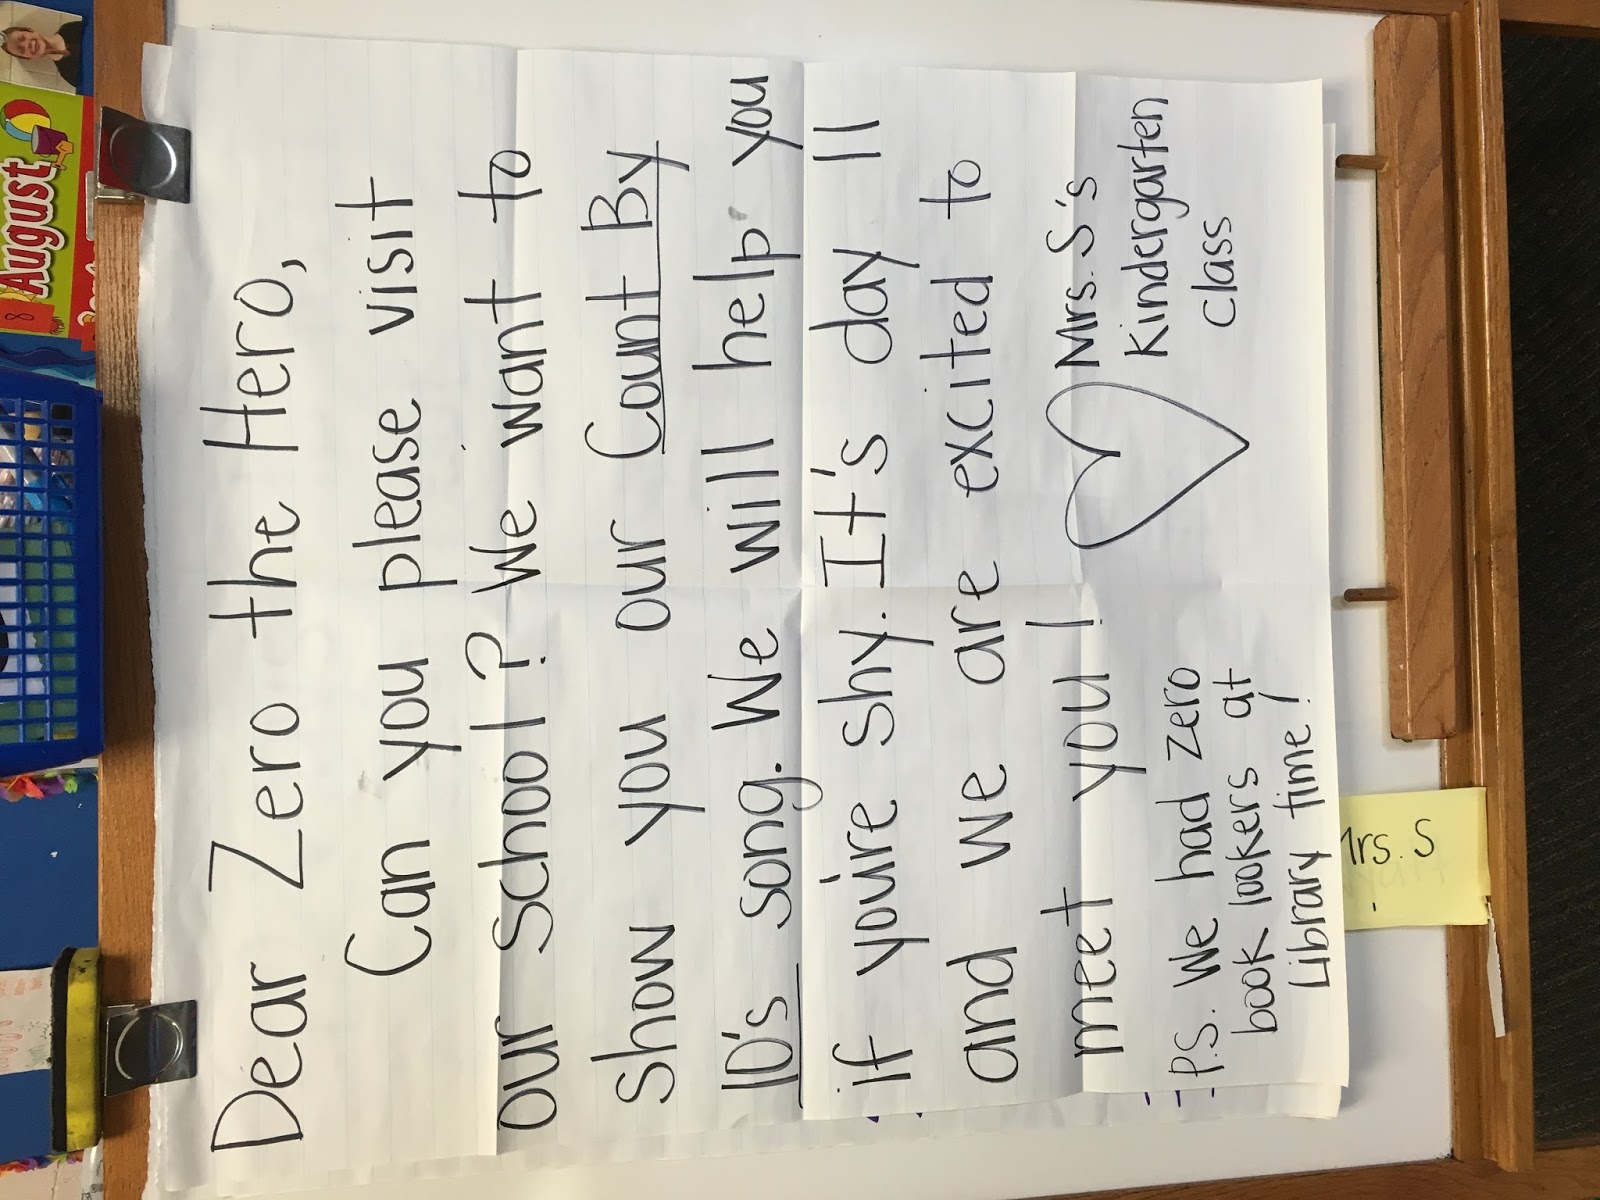 Dear Zero the Hero,
Can you please visit
our school? We want to
show you our Count By
10's song. We will help you
if you're shy. It's day 11
and we are excited to
meet you!
Mrs. S's
Kindergarten
class
P.S. We had zero
book lookers at
Library time!
Mrs. S
August
8